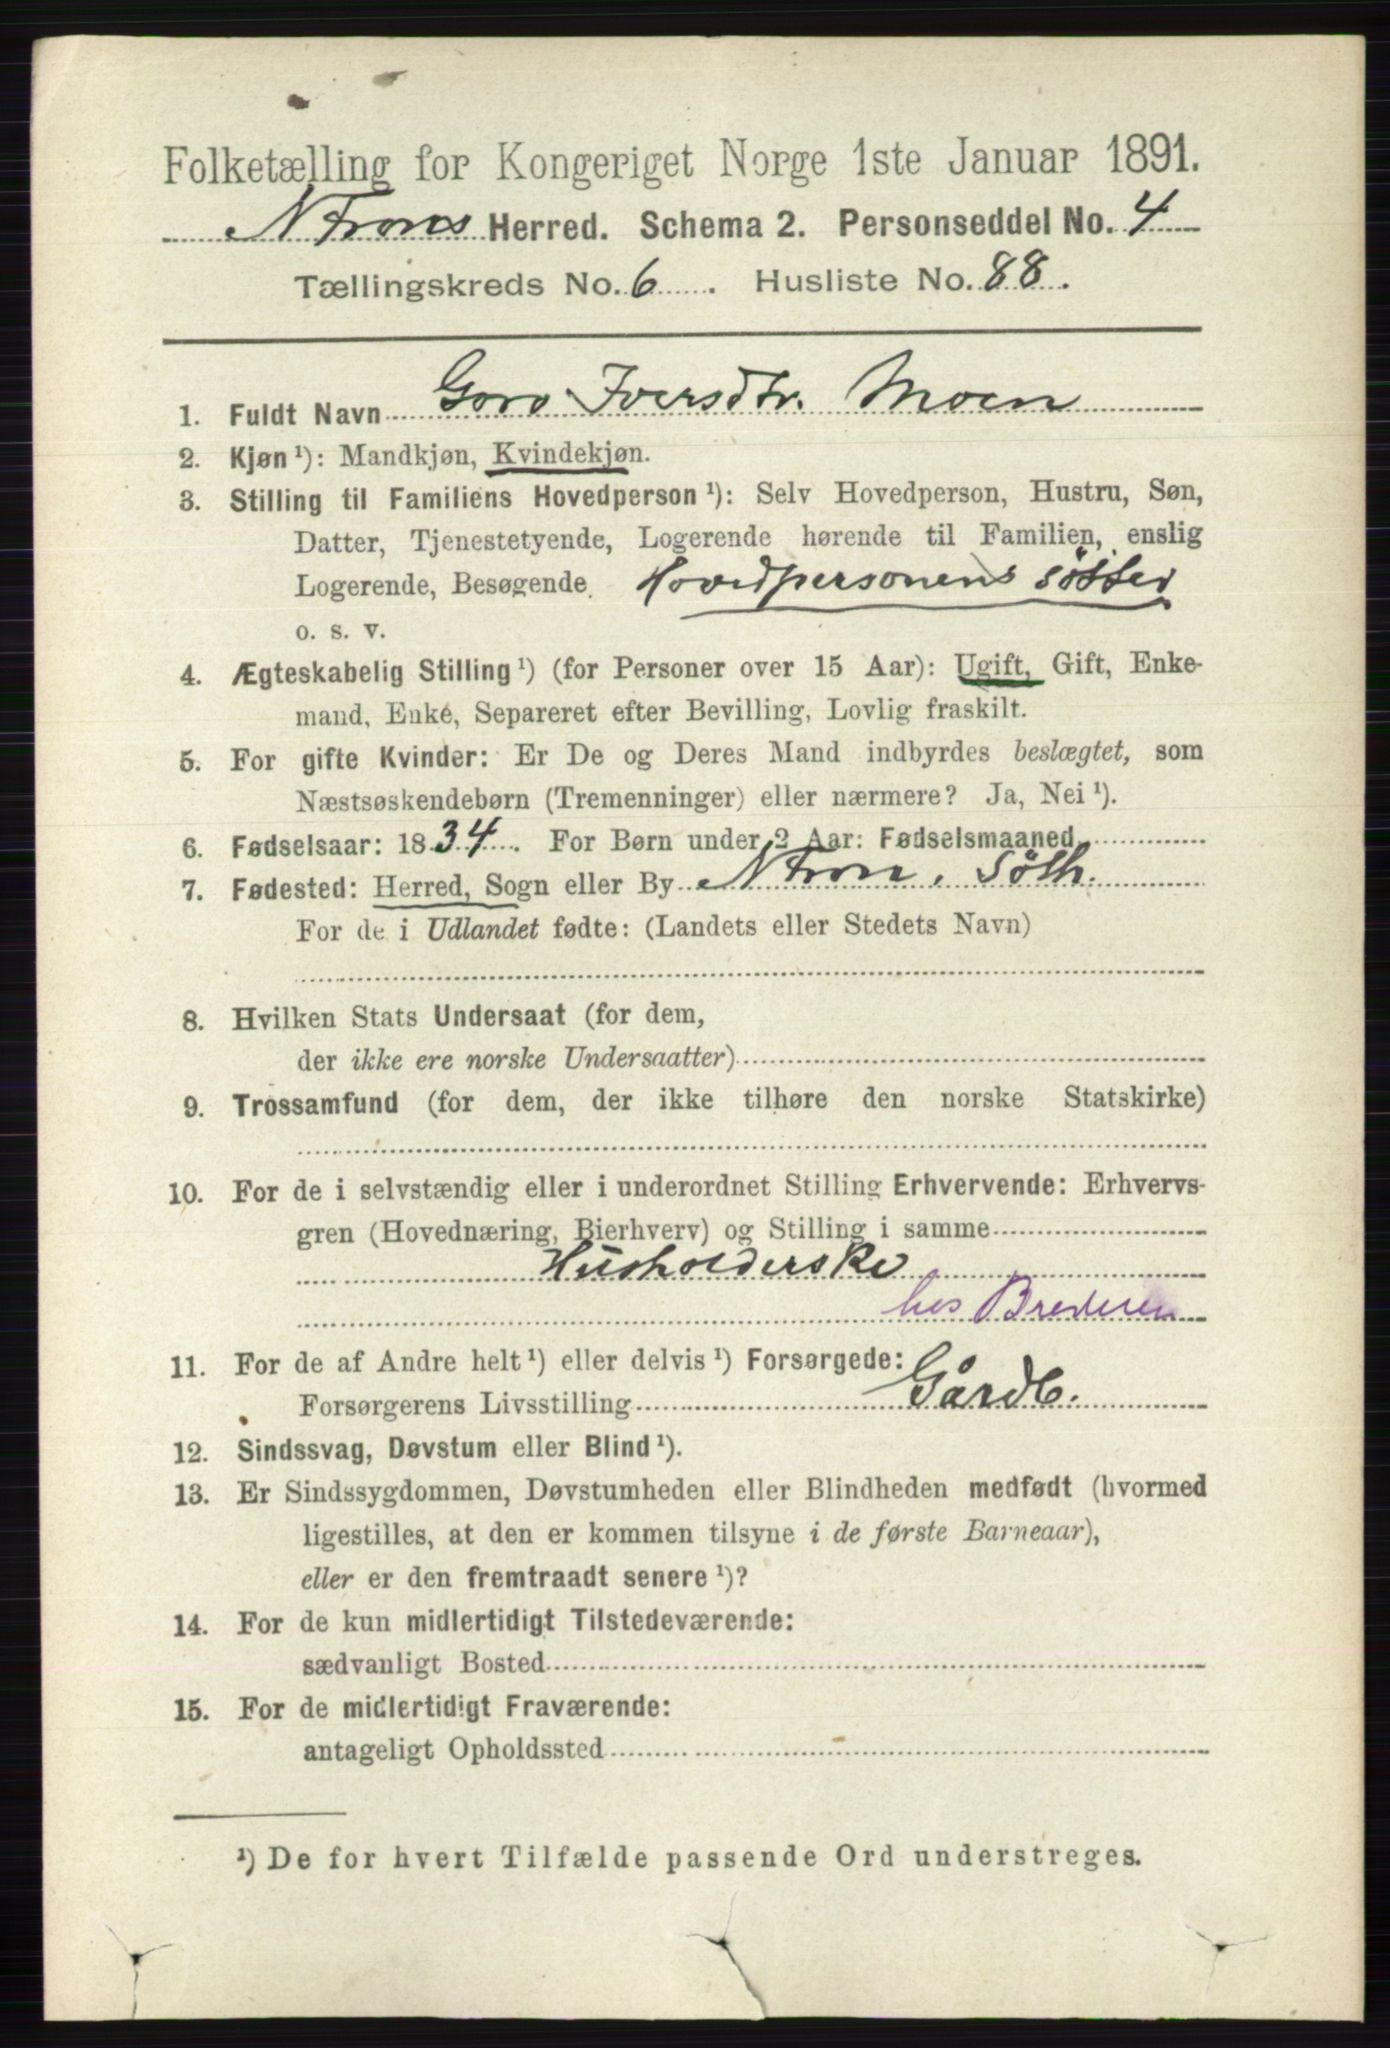 Folketælling for Kongeriget Norge 1ste Januar 1891.
N Frons Herred. Schema 2. Personseddel No. 4
Tællingskreds No. 6. Husliste No. 88.
1. Fuldt Navn Goro Iversdtr. Moen
2. Kjøn ¹): Mandkjøn, Kvindekjøn.
3. Stilling til Familiens Hovedperson ¹): Selv Hovedperson, Hustru, Søn,
Datter, Tjenestetyende, Logerende hørende til Familien, enslig
Logerende, Besøgende Hovedpersonens søster
o. s. v.
4. Ægteskabelig Stilling ¹) (for Personer over 15 Aar): Ugift, Gift, Enke-
mand, Enke, Separeret efter Bevilling, Lovlig fraskilt.
5. For gifte Kvinder: Er De og Deres Mand indbyrdes beslægtet, som
Næstsøskendebørn (Tremenninger) eller nærmere? Ja, Nei ¹).
6. Fødselsaar: 1834. For Børn under 2 Aar: Fødselsmaaned
7. Fødested: Herred, Sogn eller By N Fron, Söth.
For de i Udlandet fødte: (Landets eller Stedets Navn)
8. Hvilken Stats Undersaat (for dem,
der ikke ere norske Undersaatter)
9. Trossamfund (for dem, der ikke tilhøre den norske Statskirke)
10. For de i selvstændig eller i underordnet Stilling Erhvervende: Erhvervs-
gren (Hovednæring, Bierhverv) og Stilling i samme
Husholderske
hos Broderen
11. For de af Andre helt ¹) eller delvis ¹) Forsørgede:
Forsørgerens Livsstilling Gårdb.
12. Sindssvag, Døvstum eller Blind ¹).
13. Er Sindssygdommen, Døvstumheden eller Blindheden medfødt (hvormed
ligestilles, at den er kommen tilsyne i de første Barneaar),
eller er den fremtraadt senere ¹)?
14. For de kun midlertidigt Tilstedeværende:
sædvanligt Bosted
15. For de midlertidigt Fraværende:
antageligt Opholdssted
¹) De for hvert Tilfælde passende Ord understreges.